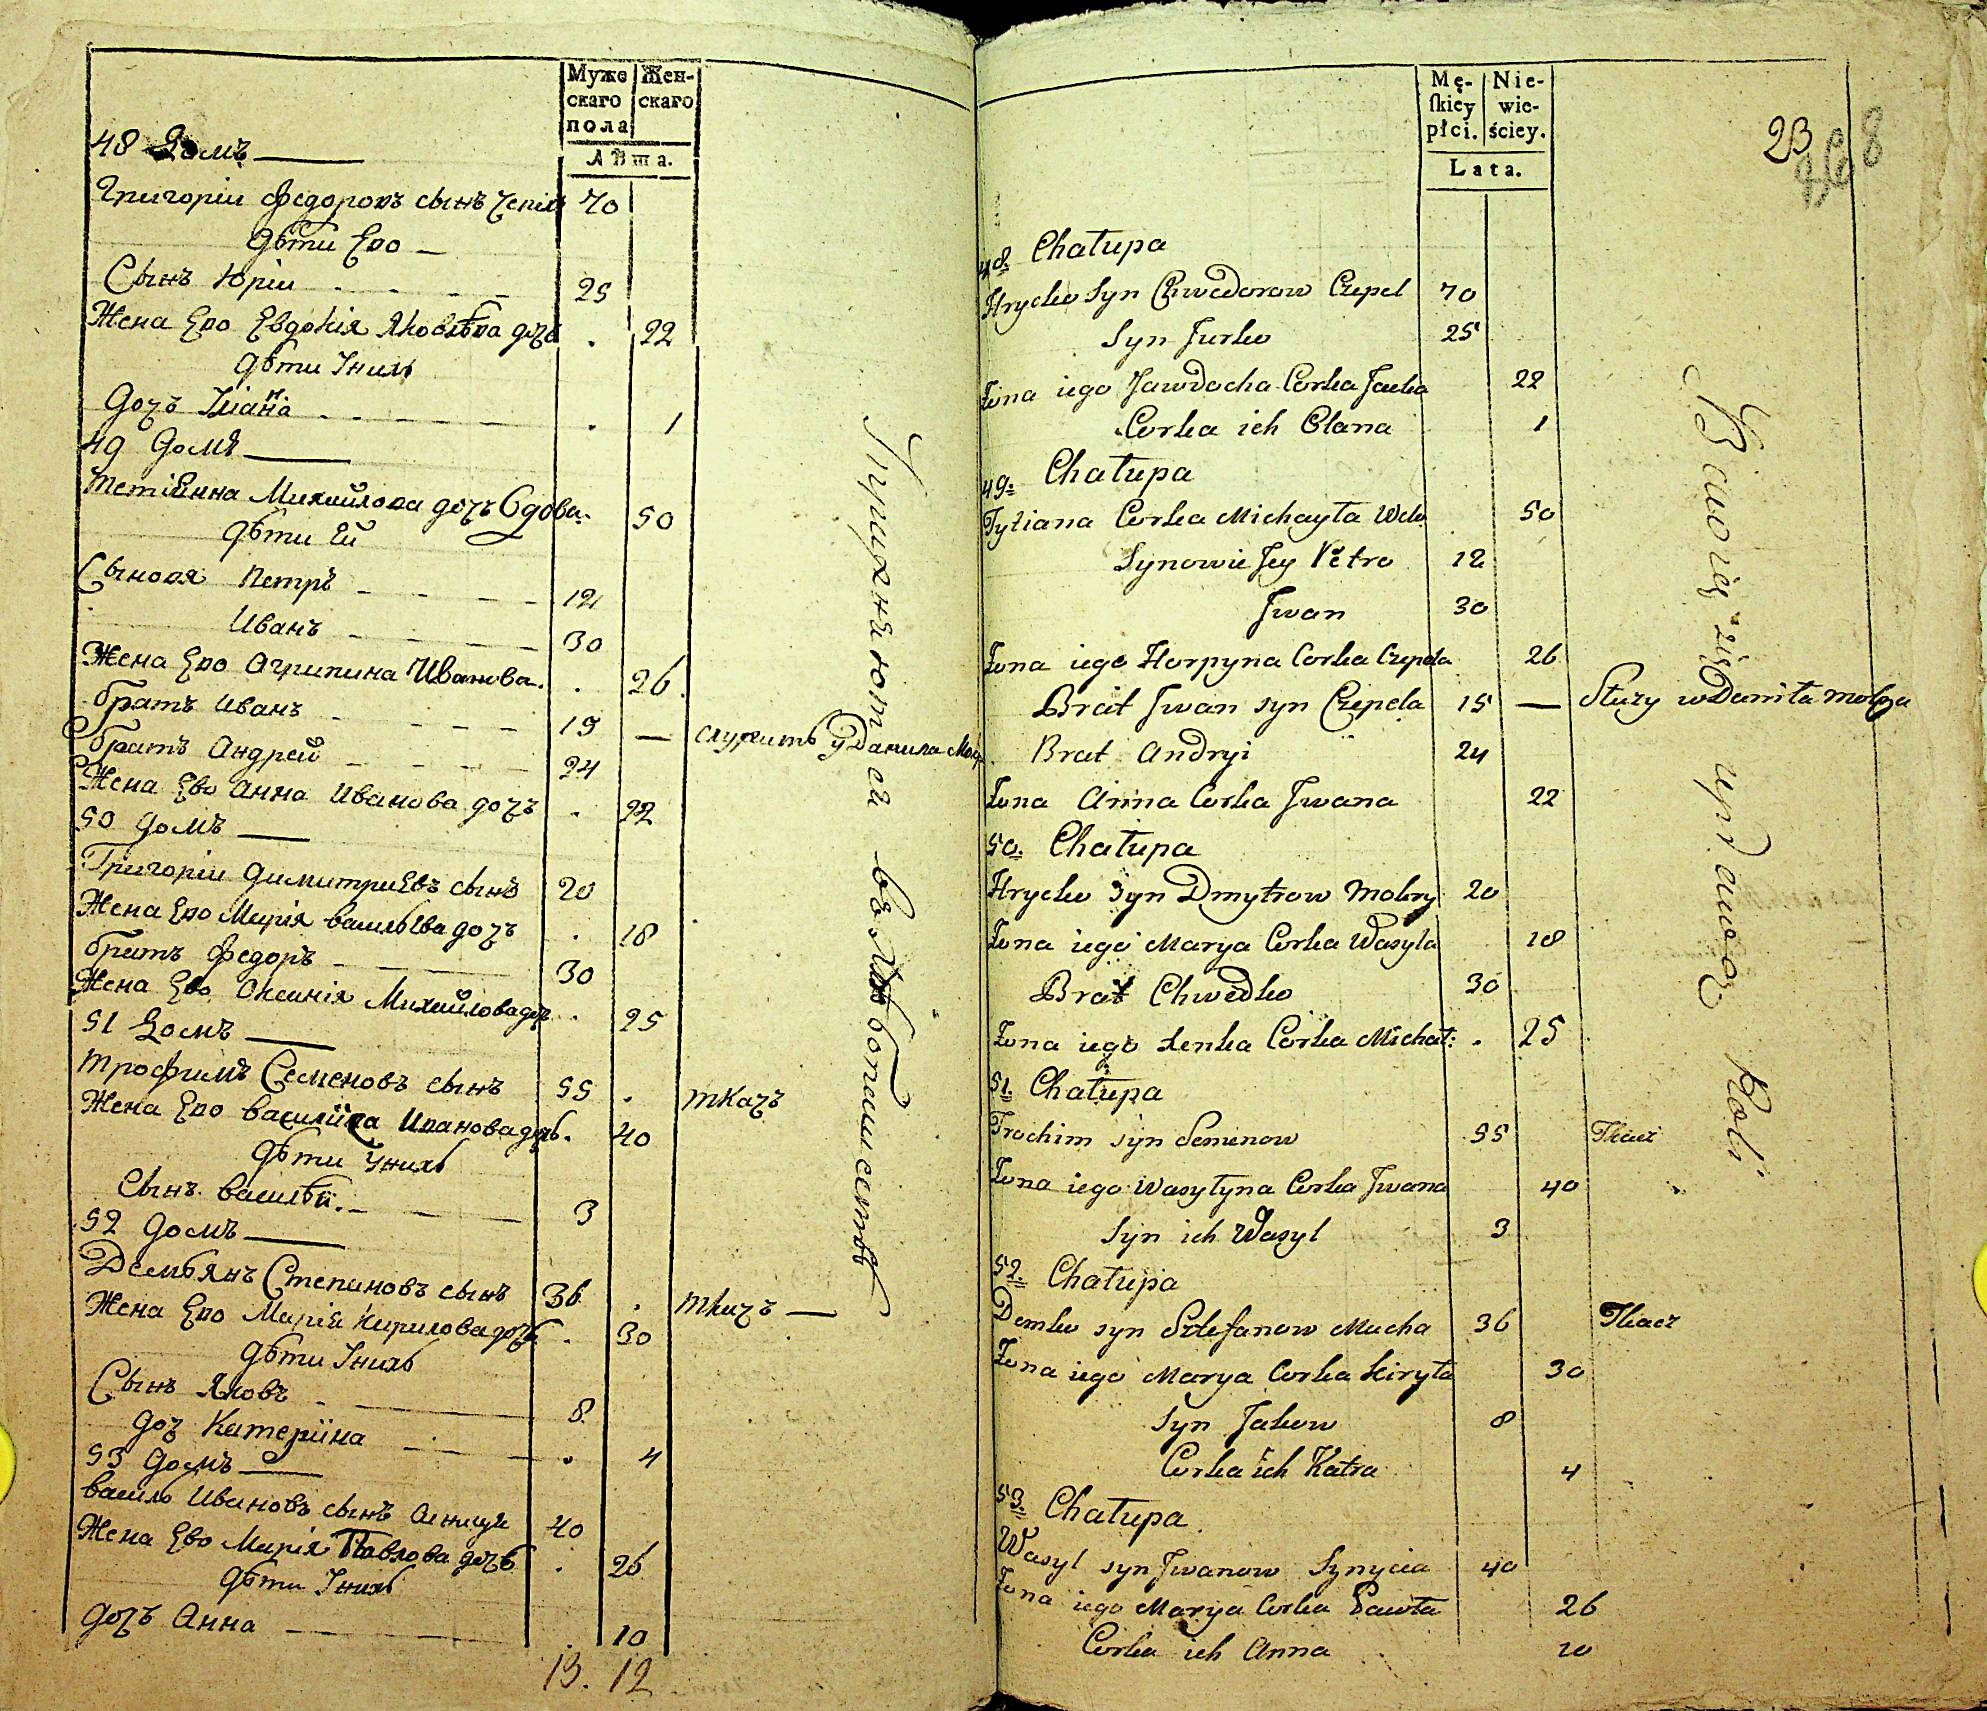 Муже
скаго
пола
Жен-
скаго
Лѣта.
48 Домъ
Григоріи Федоровъ сынъ Чепіль 70
дѣти Его
Сынъ Юріи 25
Жена Его Евдокія Яковлѣва дочь 22
дѣти Ўнихъ
Дочъ Уліана 1
49 Домъ
Тетіянна Михайлова дочъ Вдова 50
дѣти Ей
Сыновя Петръ 12
Иванъ 30
Жена Его Агрипина Иванова 26
братъ Иванъ 15 — служитъ у Данила Мокр
братъ Андрей 24
Жена Ево Анна Иванова дочъ 22
50 домъ
Григоріи Димитриевъ сынъ 20
Жена Его Марія васильева дочъ 18
братъ Федоръ 30
Жена Ево Оксинія Михайлова доч 25
51 Домъ
Трофимъ Семеновъ сынъ 55 ткачъ
Жена Его василина Иванова дочь 40
дѣти Ўнихъ
Сынъ василѣй 3
52 домъ
Демьянъ Степановъ сынъ 36 ткачъ —
Жена Его Марія Кирилова дочь 30
дѣти Ўнихъ
Сынъ Яковъ 8
доч Катерина 4
53 домъ
василь Ивановъ сынъ 40
Жена Ево Марія Павлова дочь 26
дѣти Ўнихъ
дочъ Анна 10
13. 12
Упражняются въ хлѣбопашествѣ
Mę-
skiey
płci.
Nie-
wie-
ściey.
Lata.
23
48. Chałupa
Hryćko Syn Chwedorow Czepel 70
Syn Jurko 25
Żona iego Jawdocha Corka Jacka 22
Corka ich Olana 1
49. Chałupa
Tytiana Corka Michayła Wdo 50
Synowie Jey Petro 12
Jwan 30
Żona iego Horpyna Corka Czepela 26
Brat Jwan syn Czepela 15 — Służy w Daniła Mokra
Brat Andryi 24
Żona Anna Corka Jwana 22
50. Chałupa
Hryćko Syn Dmytrow Mokry 20
Żona iego Marya Corka Wasyla 18
Brat Chwedko 30
Żona iego Xenka Corka Michał: 25
51. Chałupa
Trochim syn Semenow 55 Tkacz
Żona iego Wasyłyna Corka Jwana 40
Syn ich Wasyl 3
52. Chałupa
Demko syn Sztefanow Mucha 36 Tkacz
Żona iego Marya Corka Kiryła 30
Syn Jakow 8
Corka ich Katra 4
53. Chałupa
Wasyl syn Jwanow Synycia 40
Żona iego Marya Corka Pawła 26
Corka ich Anna 10
Bawią się uprawą Roli